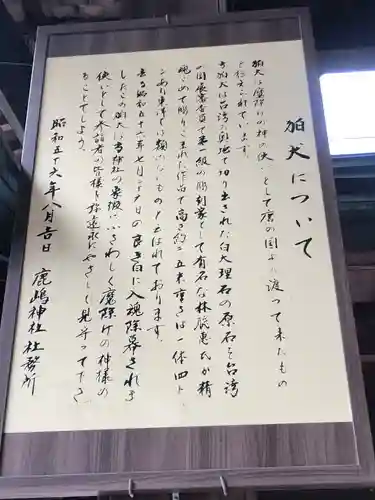 狛犬について
狛犬は魔除けの神の使いとして唐の国より渡って来たもの
と伝えられています。
当狛犬は台湾の奥地で切り出された白大理石の原石を台湾
の国展審査員で第一級の彫刻家として有名な林辰惠氏が精
魂こめて彫りこまれた作品で高さ約二五米重さは一体四ト
ンあり東洋では類のないものと云はれております。
去る昭和五十六年七月二十九日の良き日に入魂除幕されま
したこの狛犬は当神社の象徴にふさわしく魔除けの神様の
使いとして参詣者の皆様を弥遠永にやさしく見守って下さ
ることでしょう。
昭和五十六年八月吉日 鹿嶋神社社務所